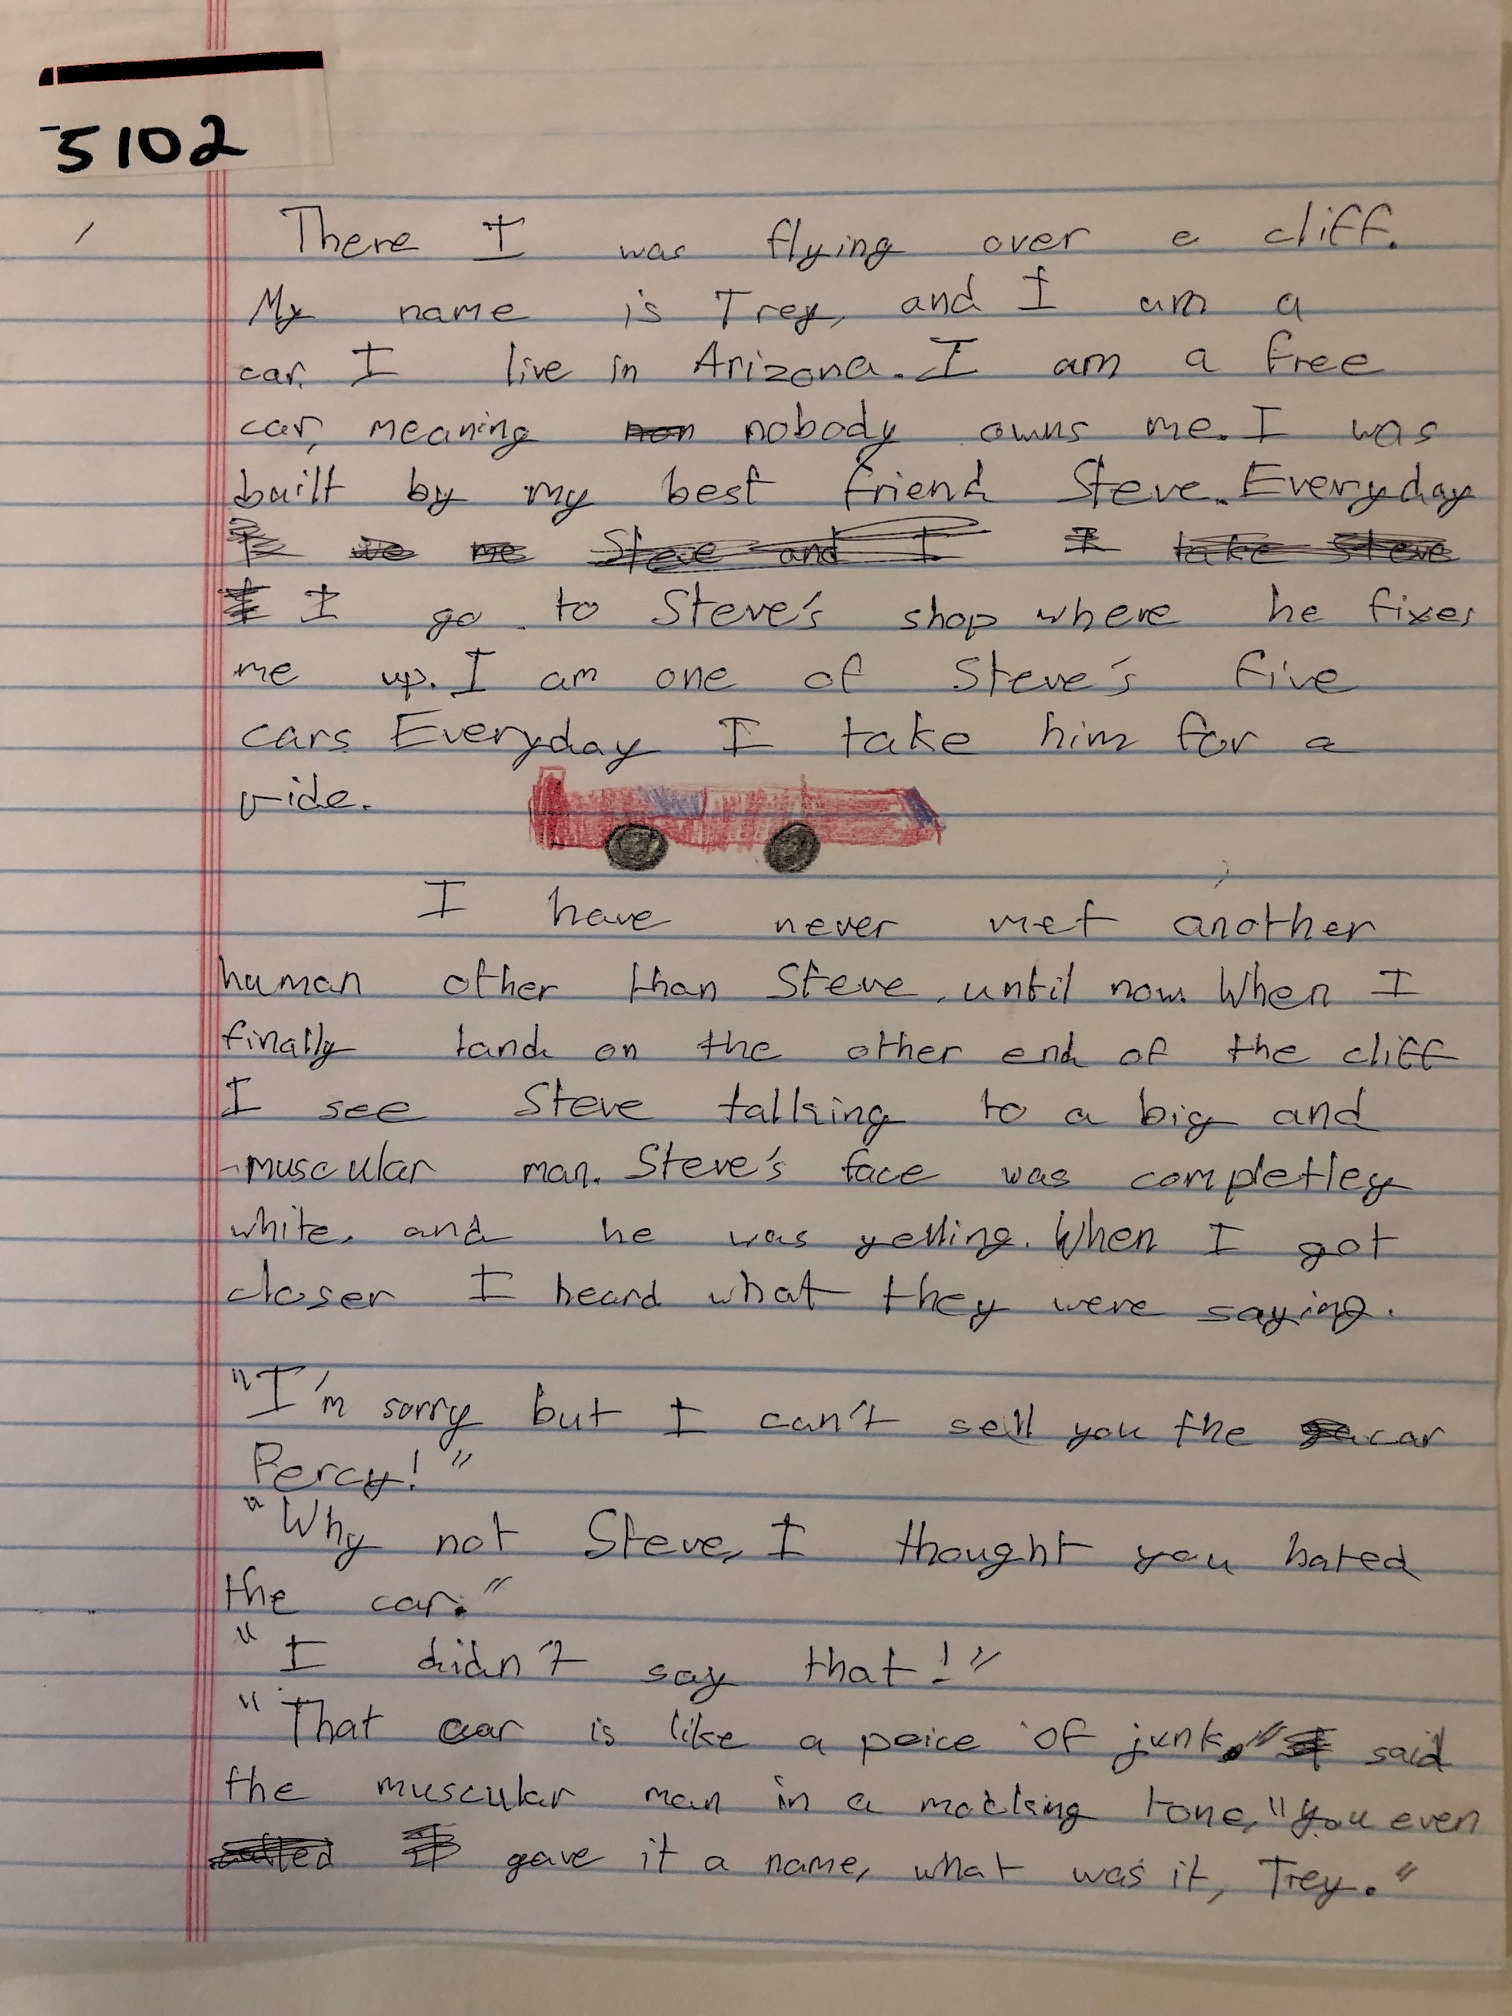 5102
There I was flying over a cliff.
My name is Trey, and I am a
car. I live in Arizona. I am a free
car, meaning non nobody owns me. I was
built by my best friend Steve. Everyday
I we me Steve and I I take Steve
I I go to Steve's shop where he fixes
me up. I am one of Steve's five
cars Everyday I take him for a
ride.
I have never met another
human other than Steve, until now. When I
finally land on the other end of the cliff
I see Steve talking to a big and
muscular man. Steve's face was completley
white, and he was yelling. When I got
closer I heard what they were saying.
"I'm sorry but I can't sell you the car
Percy!"
"Why not Steve, I thought you hated
the car."
"I didn't say that!"
"That car is like a peice of junk." said
the muscular man in a mocking tone, "you even
gave it a name, what was it, Trey."